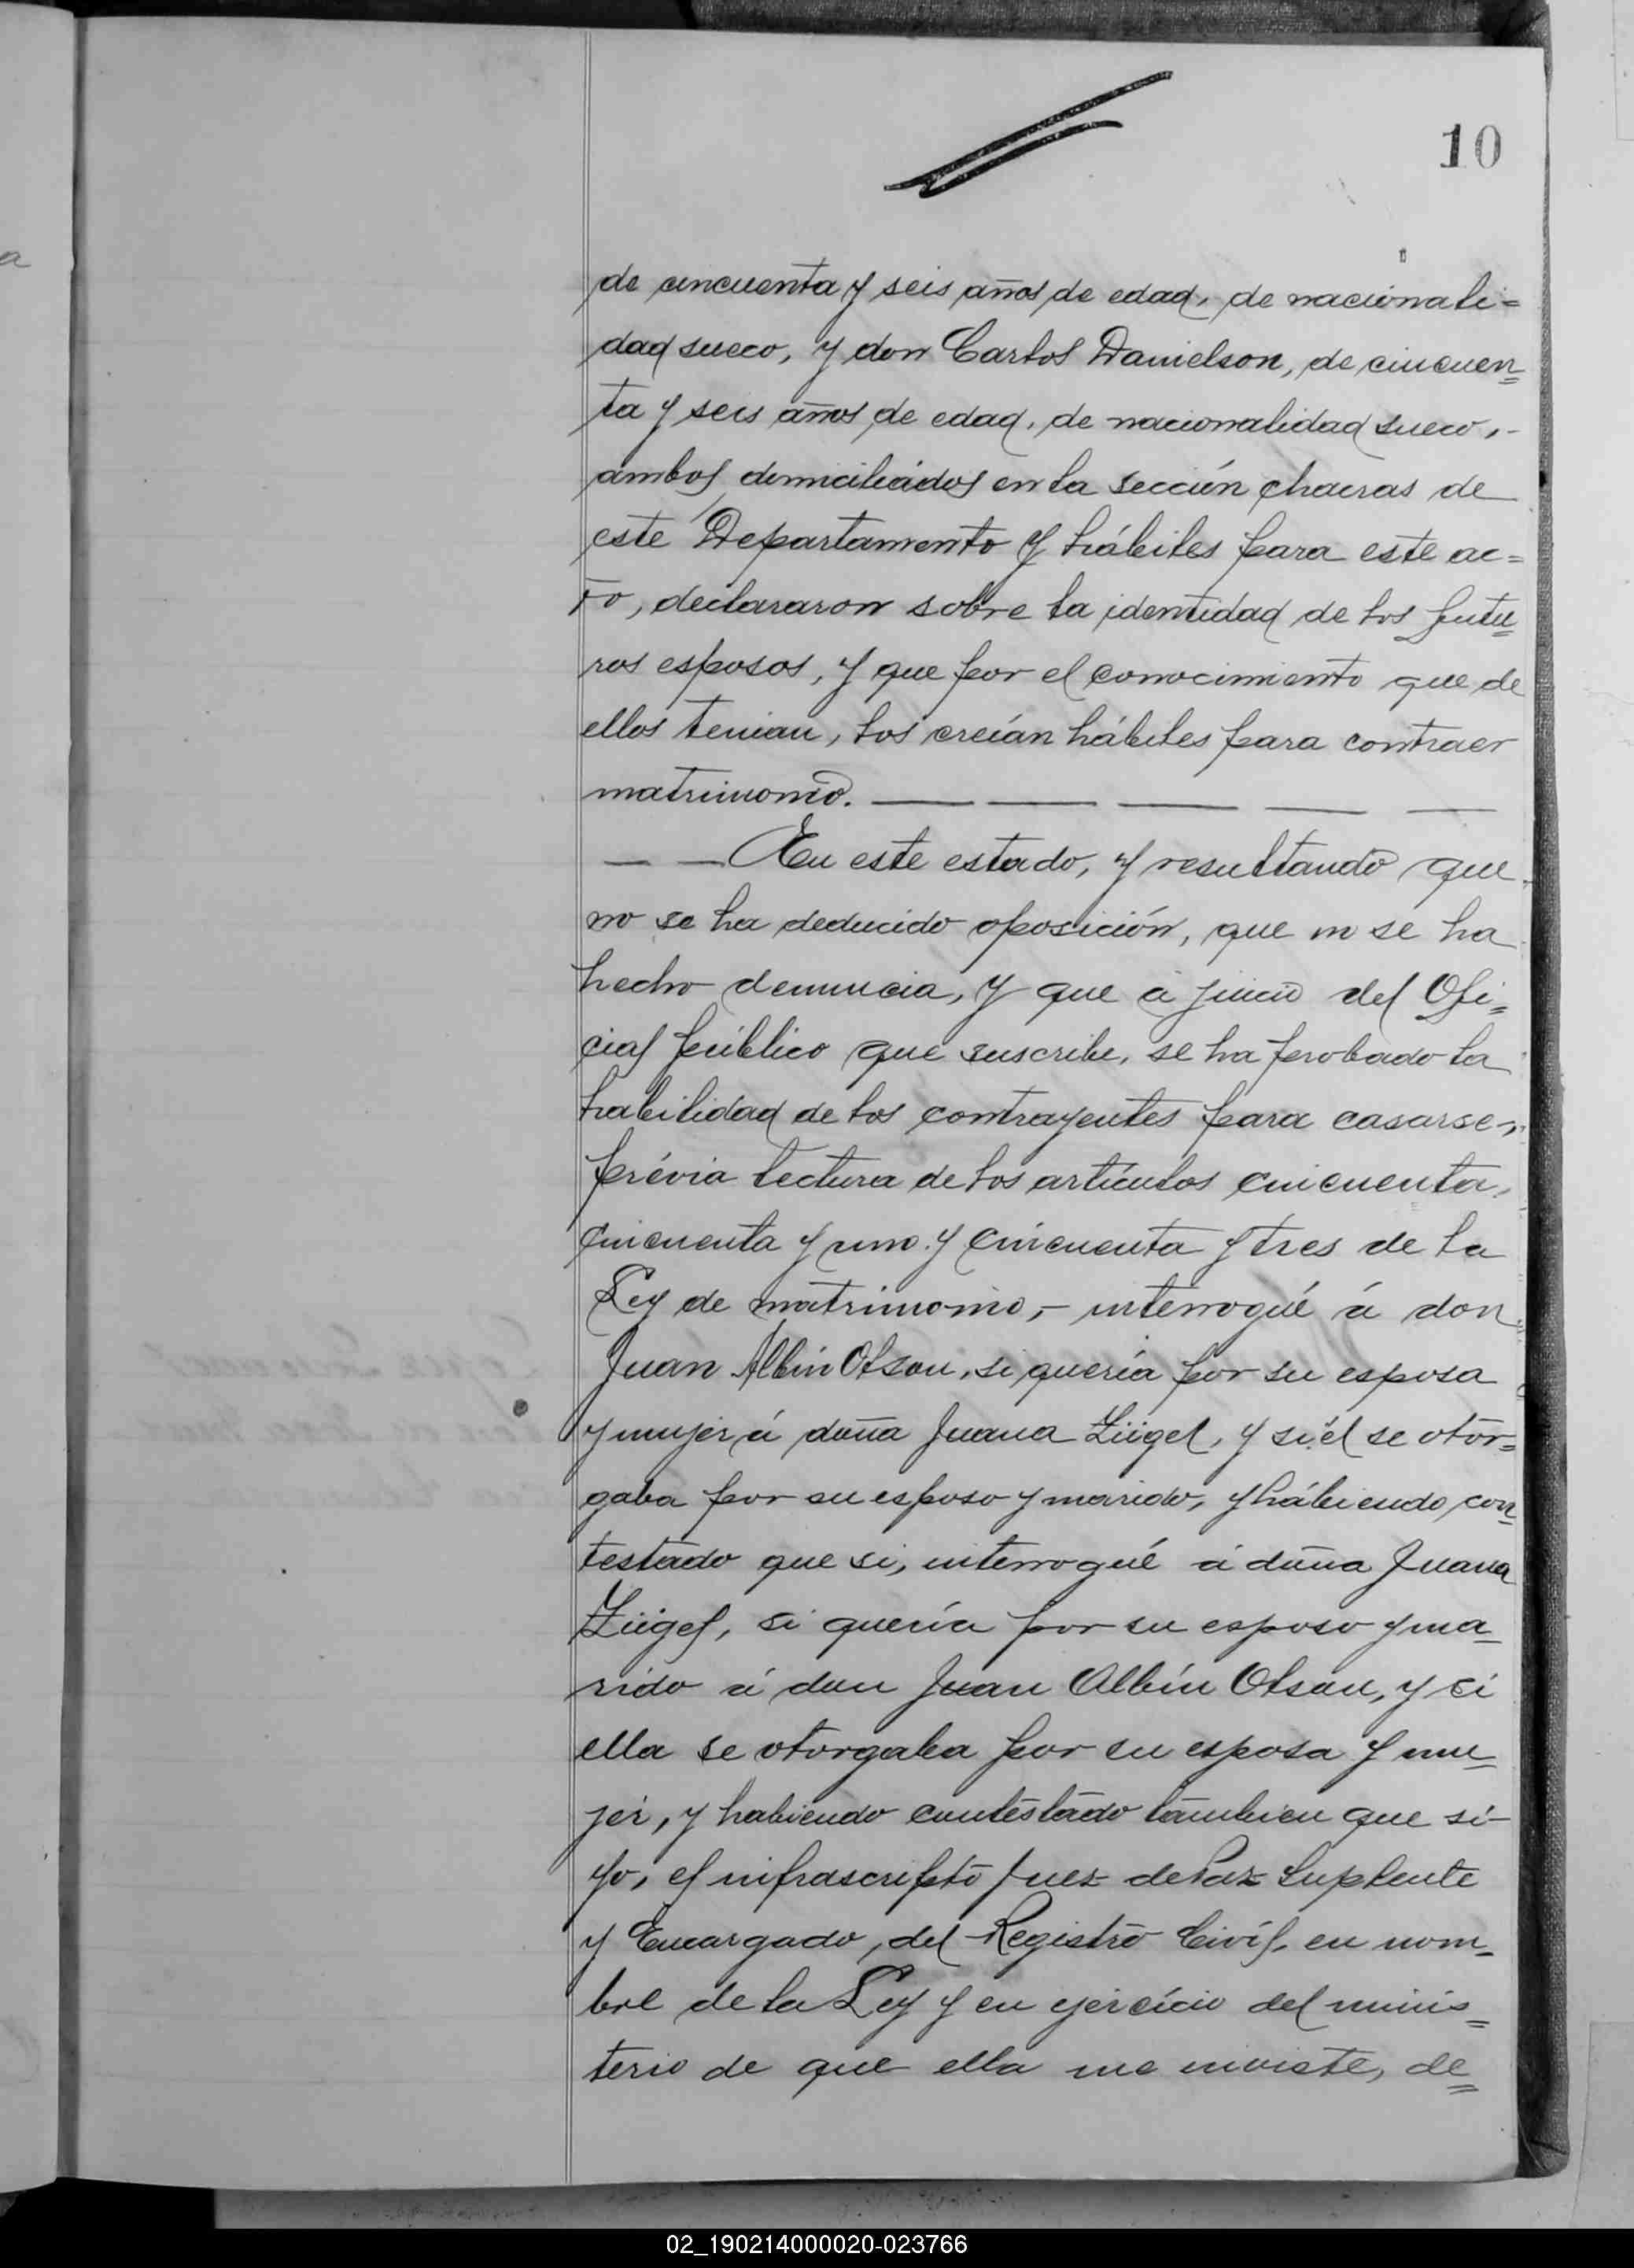 10
de cincuenta y seis años de edad, de nacionali=
dad sueco, y don Carlos Danielson, de cincuen=
ta y seis años de edad, de nacionalidad sueco,-
ambos domiciliados en la sección chacras de
este Departamento y hábiles para este ac=
to, declararon sobre la identidad de los futu=
ros esposos, y que por el conocimiento que de
ellos tenian, los creían hábiles para contraer
matrimonio. — — — — —
— — En este estado, y resultando que
no se ha deducido oposición, que no se ha
hecho denuncia, y que á juicio del Ofi=
cial público que suscribe, se ha probado la
habilidad de los contrayentes para casarse,
prévia lectura de los artículos cincuenta,
cincuenta y uno y cincuenta y tres de la
Ley de matrimonio,- interrogué á don
Juan Albin Olson, si quería por su esposa
y mujer á doña Juana Zügel, y si él se otor=
gaba por su esposo y marido, y hábiendo con=
testado que si, interrogué á doña Juana
Zügel, si quería por su esposo y ma=
rido á don Juan Albín Olson, y si
ella se otorgaba por su esposa y mu=
jer, y habiendo contestado tambien que si-
yo, el infrascripto Juez de Paz Suplente
y Encargado, del Registro Civil, en nom=
bre de la Ley y en ejercicio del minis=
terio de que ella me inviste, de=
02_190214000020-023766